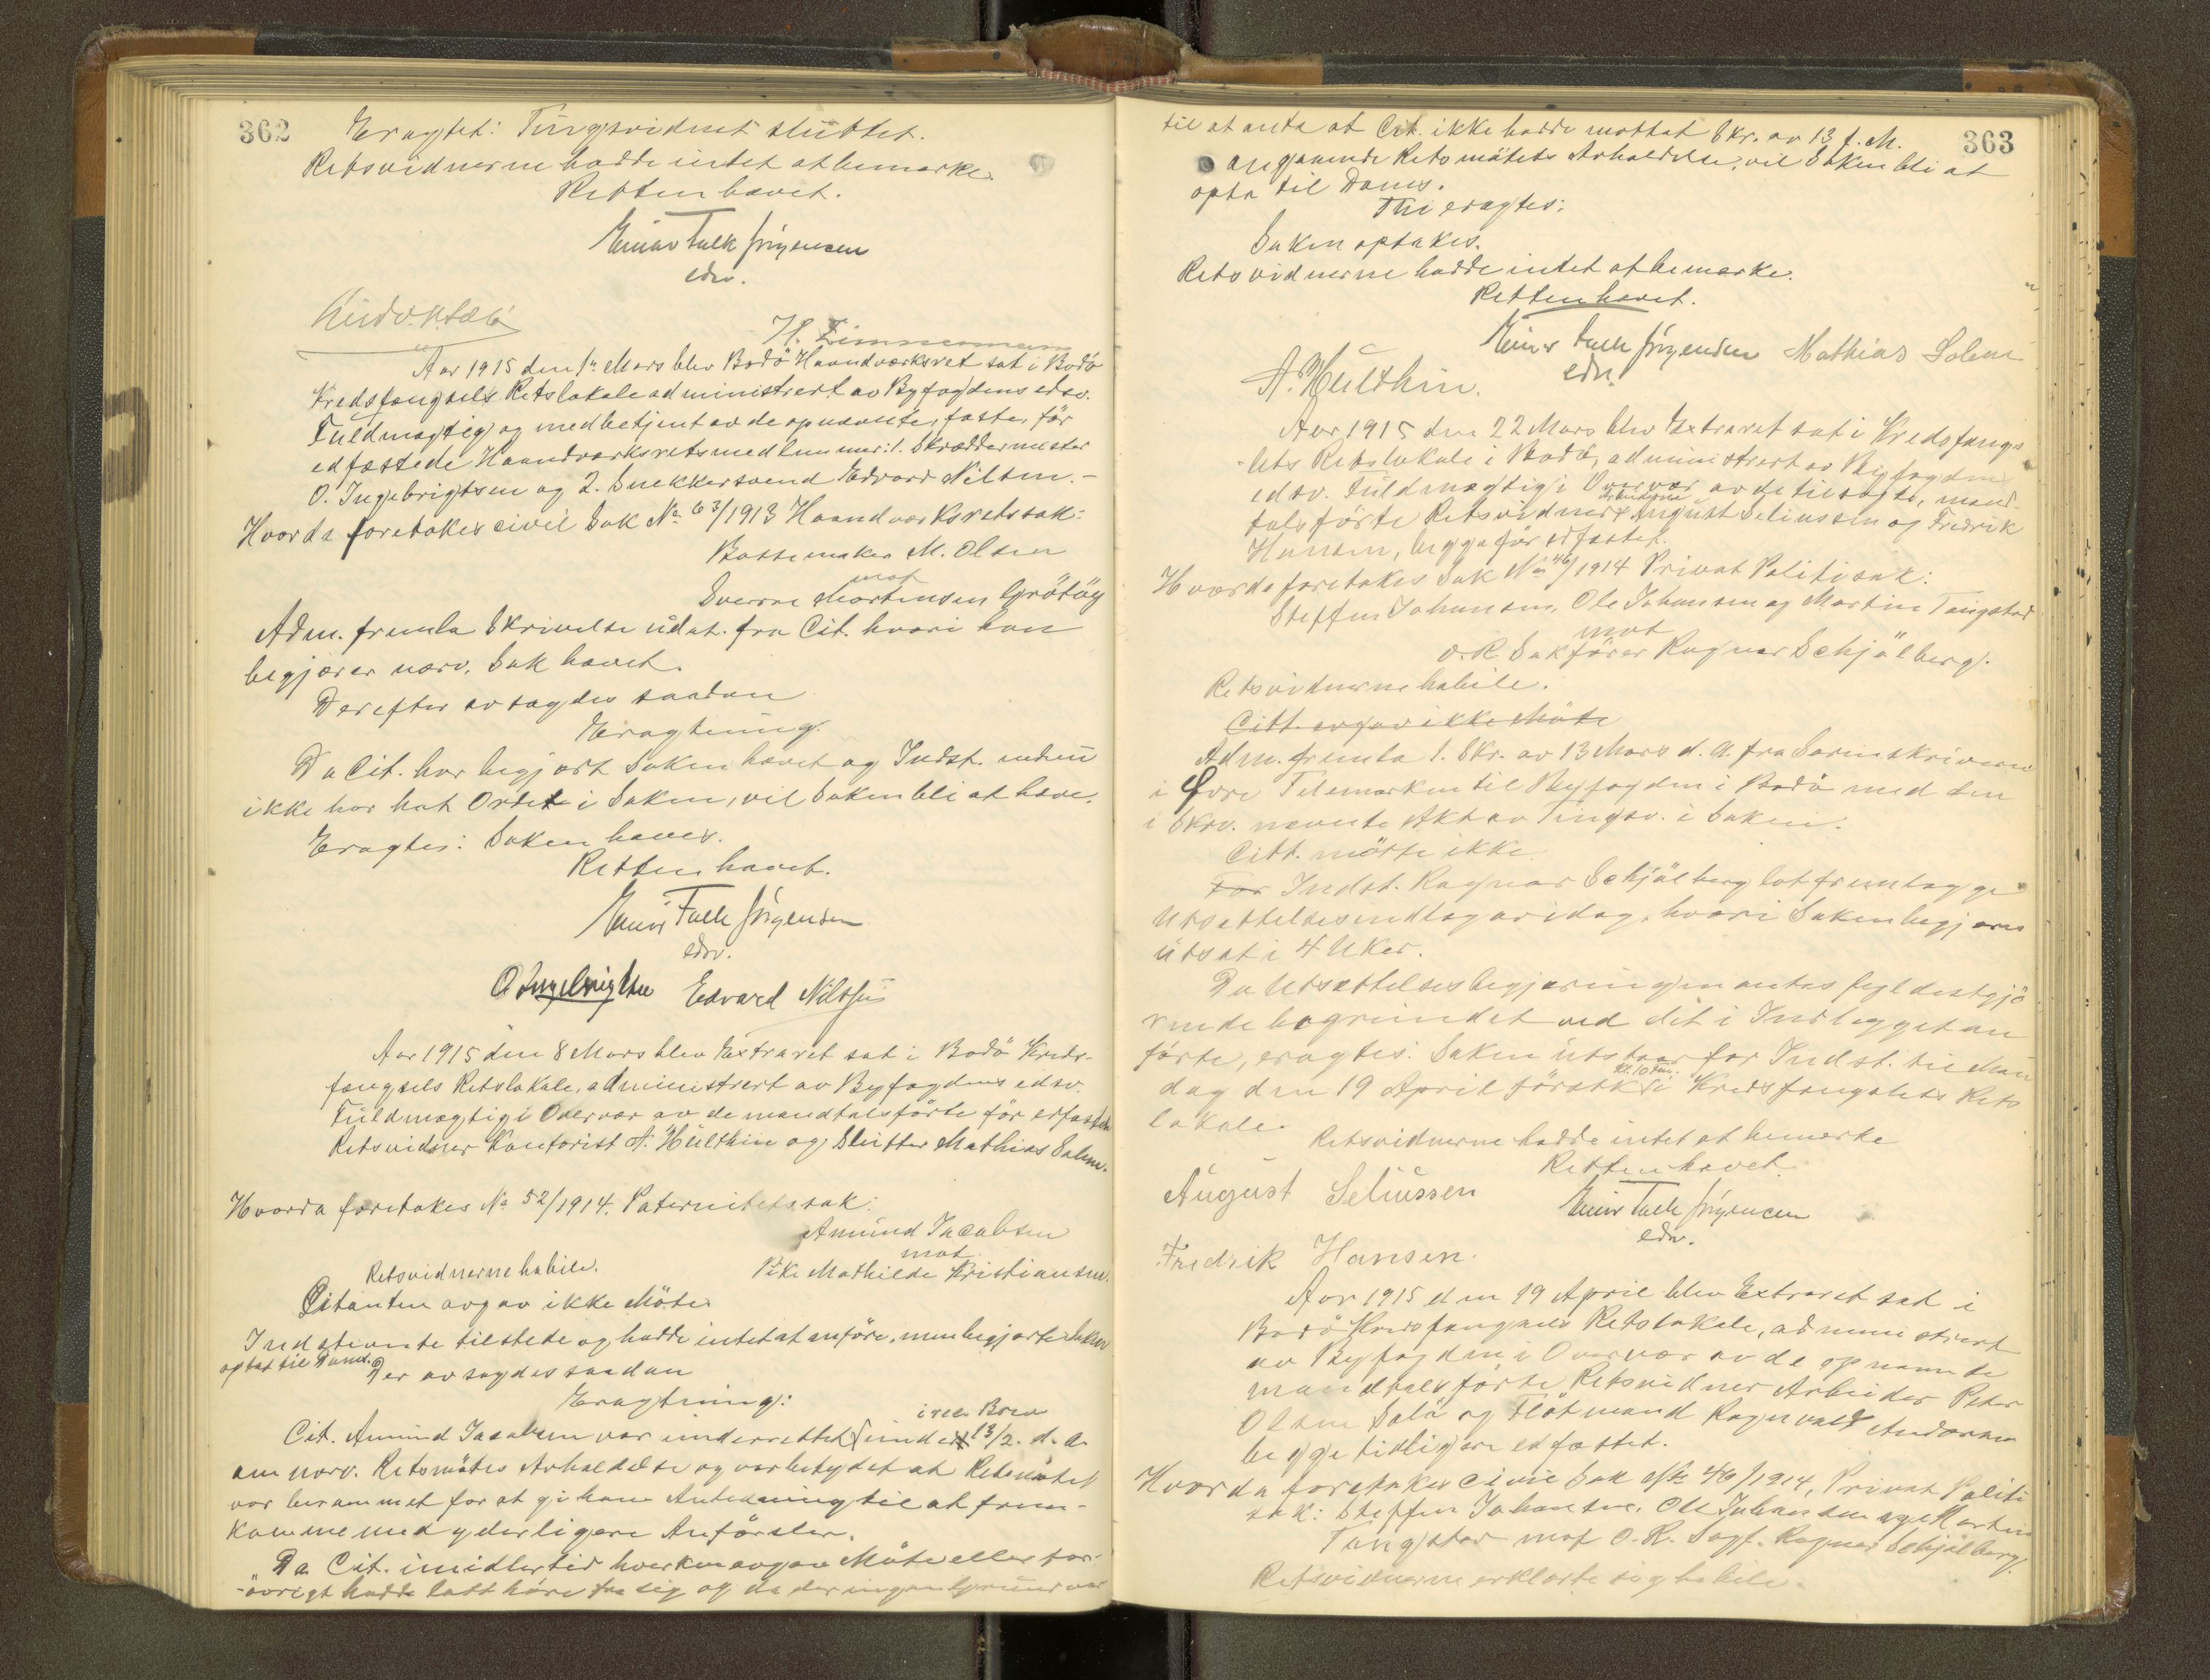 362
Eragtet: Tingsvidnet sluttet.
Retsvidnerne hadde intet at bemerke.
Retten hævet.
Einar Falk Jörgensen
edsv.
H. Zimmermann
Aar 1915 den 1ste Mars blev Bodö Haandverksret sat i Bodö
Kredsfængsels Retslokale administrert av Byfogdens edsv.
Fuldmægtig og med betjent av de opnævnte, faste, før
edfæstede Haandværksretsmedlemmer: 1. Skræddermester
O. Ingebrigtsen og 2. Snekkersvend Edvard Nilsen. -
Hvorda foretokes civil Sak No 63/1913 Haandværksretssak:
Bøssemaker M. Olsen
mot
Sverre Mortensen Grötöy
Adm. fremla Skrivelse udat. fra Cit. hvori han
begjærer nærv. Sak hævet.
Derefter avsagdes saadan
Eragtning.
Da Cit. har begjært Saken hævet og Indst. endnu
ikke har hat Ordet i Saken, vil Saken bli at hæve.
Eragtes: Saken hæves.
Retten hævet.
Einar Falk Jörgensen
edsv.
O Ingebrigtsen Edvard Nilssen
Aar 1915 den 8 Mars blev Extraret sat i Bodö Kreds-
fængsels Retslokale, administrert av Byfogdens edsv.
Fuldmægtig i Overvær av de mandtalsförte för edfæstede
Retsvidner Kontorist A. Hülthin og Slutter Mathias Solem.
Hvorda foretokes No 52/1914. Paternitetssak:
Amund Jacobsen
mot
Retsvidnerne habile. Pike Mathilde Kristiansen.
Citanten avgav ikke Møte.
Indstevnte tilstede og hadde intet at anföre, men begjærte Saken
optat til Doms. Der avsagdes saadan
Eragtning:
i rec. Brev
Cit. Amund Jacobsen var underrettet under 13/2. d. A.
om nærv. Retsmötes Avholdelse og var betydet at Retsmötet
var berammet for at gi ham Anledning til at frem-
komme med yderligere Anförsler.
Da Cit. imidlertid hverken avgav Møte eller for-
övrigt hadde latt höre fra sig og da der ingen Grund var
363
til at anta at Cit. ikke hadde mottat Skr. av 13 f. M.
angaaende Retsmötets Avholdelse, vil Saken bli at
opta til Doms.
Thi eragtes:
Saken optakes.
Retsvidnerne hadde intet at bemerke.
Retten hævet.
Einar Falk Jörgensen Mathias Solem
edsv.
A. Hülthin.
Aar 1915 den 22 Mars blev Extraret sat i Kredsfængs-
lets Retslokale i Bodö, administrert av Byfogdens
edsv. Fuldmægtig i Overvær av de tilsagte, mand-
Arbeiderne
talsförte Retsvidner August Seliussen og Fredrik
Hansen, begge för edfæstet.
Hvorda foretokes Sak No 46/1914 Privat Politisak:
Steffen Johansen, Ole Johansen og Martin Tangstad
mot
O.R. Sakförer Ragnar Schjölberg.
Retsvidnerne habile.
Citt. avgav ikke Møte
Adm. fremla 1. Skr. av 13 Mars d. A. fra Sorenskriveren
i Øvre Telemarken til Byfogden i Bodö med den
i Skrv. nævnte Akt av Tingsv. i Saken.
Citt. mötte ikke.
For Indst. Ragnar Schjölberg lot fremlægge
Utsettelsesindlæg av idag, hvori Saken begjæres
utsat i 4 Uker.
Da Utsættelsesbegjæringen antas fyldestgjö
rende begrundet ved det i Indlægget an
förte, eragtes: Saken utstaar for Indst. til Man
Kl. 10 Fm.
dag den 19 April förstk. i Kredsfængslets Rets
lokale.
Retsvidnerne hadde intet at bemerke
Retten hævet.
August Seliussen
Einar Falk Jörgensen
edsv.
Fredrik Hansen.
Aar 1915 den 19 April blev Extraret sat i
Bodö Kredsfængsels Retslokale, administrert
av Byfogden i Overvær av de opnævnte
mandtalsförte Retsvidner Arbeider Peter
Olsen Salö og Flötmand Ragnvald Andersen
begge tidligere edfæstet.
Hvorda foretokes civil Sak No 46/1914, Privat Politi
sak: Steffen Johansen, Ole Johansen og Martin
Tangstad mot O.R. Sagf. Ragnar Schjölberg.
Retsvidnerne erklærte sig habile.